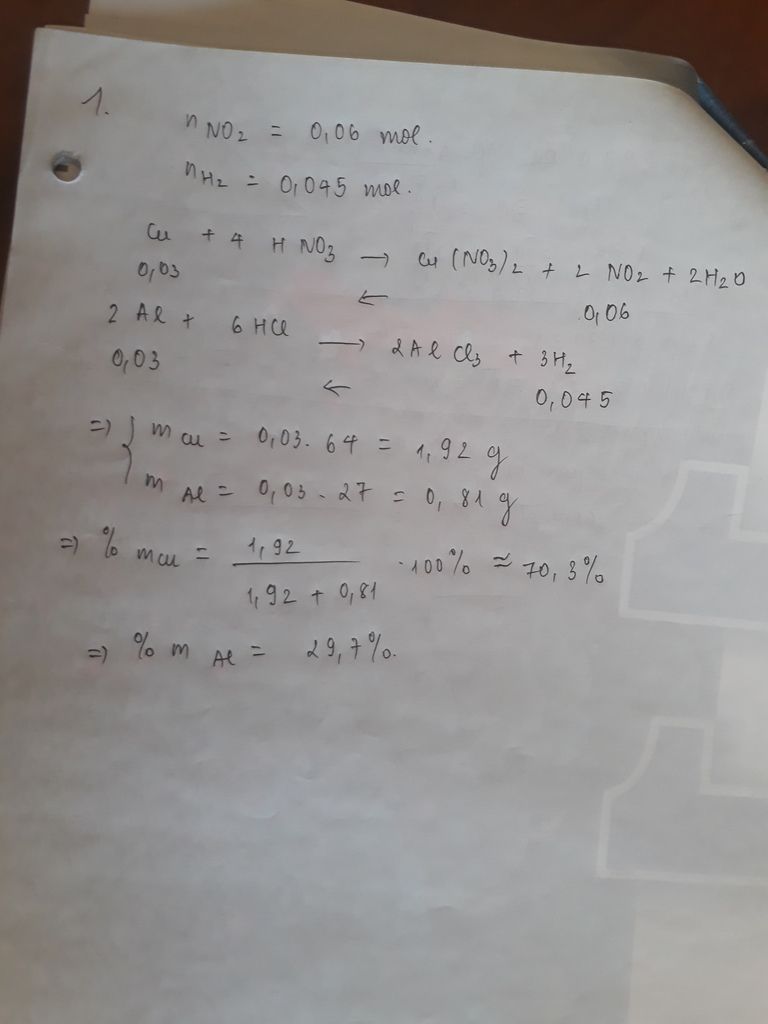 1.
n NO2 = 0,06 mol.
n H2 = 0,045 mol.
Cu + 4 HNO3 → Cu(NO3)2 + 2 NO2 + 2H2O
0,03 ← 0,06
2 Al + 6 HCl → 2AlCl3 + 3H2
0,03 ← 0,045
=> { m Cu = 0,03. 64 = 1,92 g
m Al = 0,03 . 27 = 0,81 g
=> % m Cu = 1,92 / 1,92 + 0,81 . 100% ≈ 70,3%
=> % m Al = 29,7%.